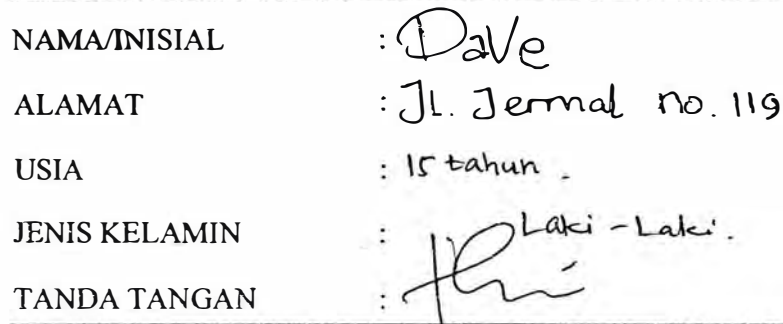 NAMA/INISIAL : Dave
ALAMAT : Jl. Jermal no. 119
USIA : 15 tahun.
JENIS KELAMIN : Laki-Laki.
TANDA TANGAN :